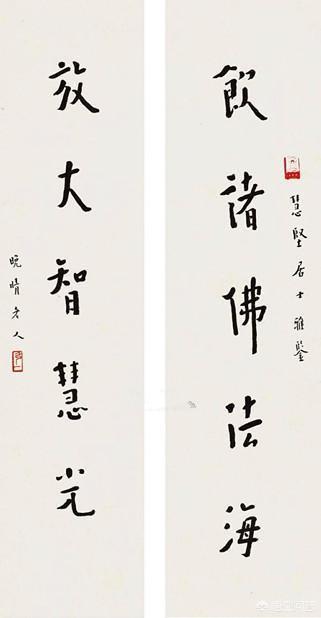 慧堅居士雅鑒
飲諸佛法海
放大智慧光
晚晴老人